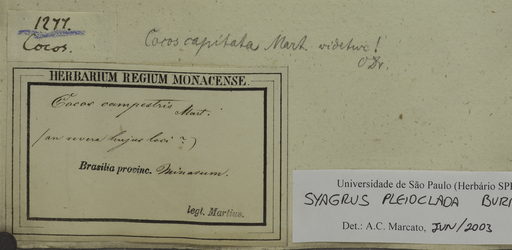 1277.
Cocos.
Cocos capitata Mart. videtur!
O Dr.
HERBARIUM REGIUM MONACENSE.
Cocos campestris Mart.
(an revera hujus loci ?)
Brasilia provinc. Minarum.
legt. Martius.
Universidade de São Paulo (Herbário SP
SYAGRUS PLEIOCLADA BUR
Det.: A.C. Marcato, JUN/2003